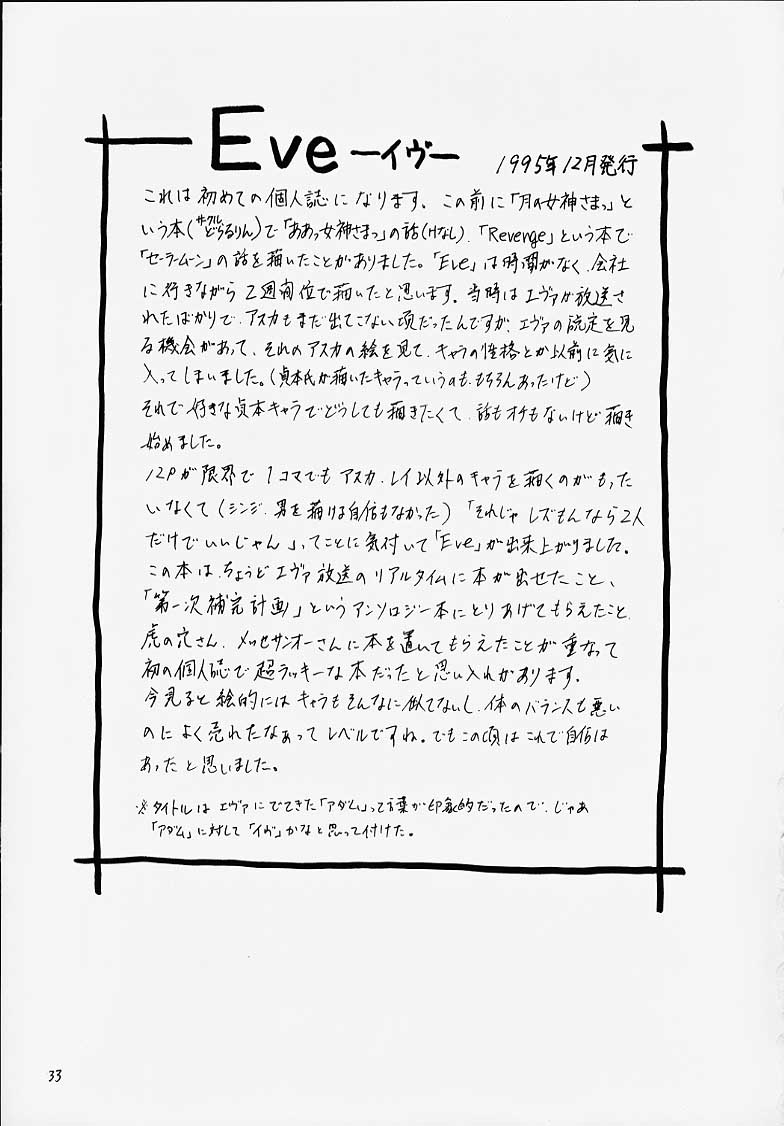 Eve ―イヴ― 1995年12月発行
これは初めての個人誌になります、この前に「月の女神さまっ」と
いう本(サークルどちるりん)で「ああっ女神さまっ」の話(Hなし)、「Revenge」という本で
「セーラームーン」の話を描いたことがありました。「Eve」は時間がなく、会社
に行きながら2週間位で描いたと思います。当時はエヴァが放送さ
れたばかりで、アスカもまだ出てこない頃だったんですが、エヴァの設定を見
る機会があって、それのアスカの絵を見て、キャラの性格とか以前に気に
入ってしまいました。(貞本氏が描いたキャラっていうのも、もちろんあったけど)
それで好きな貞本キャラでどうしても描きたくて、話もオチもないけど描き
始めました。
12Pが限界で1コマでもアスカ、レイ以外のキャラを描くのがもった
いなくて(シンジ、男を描ける自信もなかった)「それじゃレズもんなら2人
だけでいいじゃん」ってことに気付いて「Eve」が出来上がりました。
この本は、ちょうどエヴァ放送のリアルタイムに本が出せたこと、
「第一次補完計画」というアンソロジー本にとりあげてもらえたこと、
虎の穴さん、メッセサンオーさんに本を置いてもらえたことが重なって
初の個人誌で超ラッキーな本だったと思い入れがあります。
今見ると絵的にはキャラもそんなに似てないし、体のバランスも悪い
のによく売れたなぁってレベルですね。でもこの頃はこれで自信は
あったと思いました。
※タイトルはエヴァにでてきた「アダム」って言葉が印象的だったので、じゃあ
「アダム」に対して「イヴ」かなと思って付けた。
33